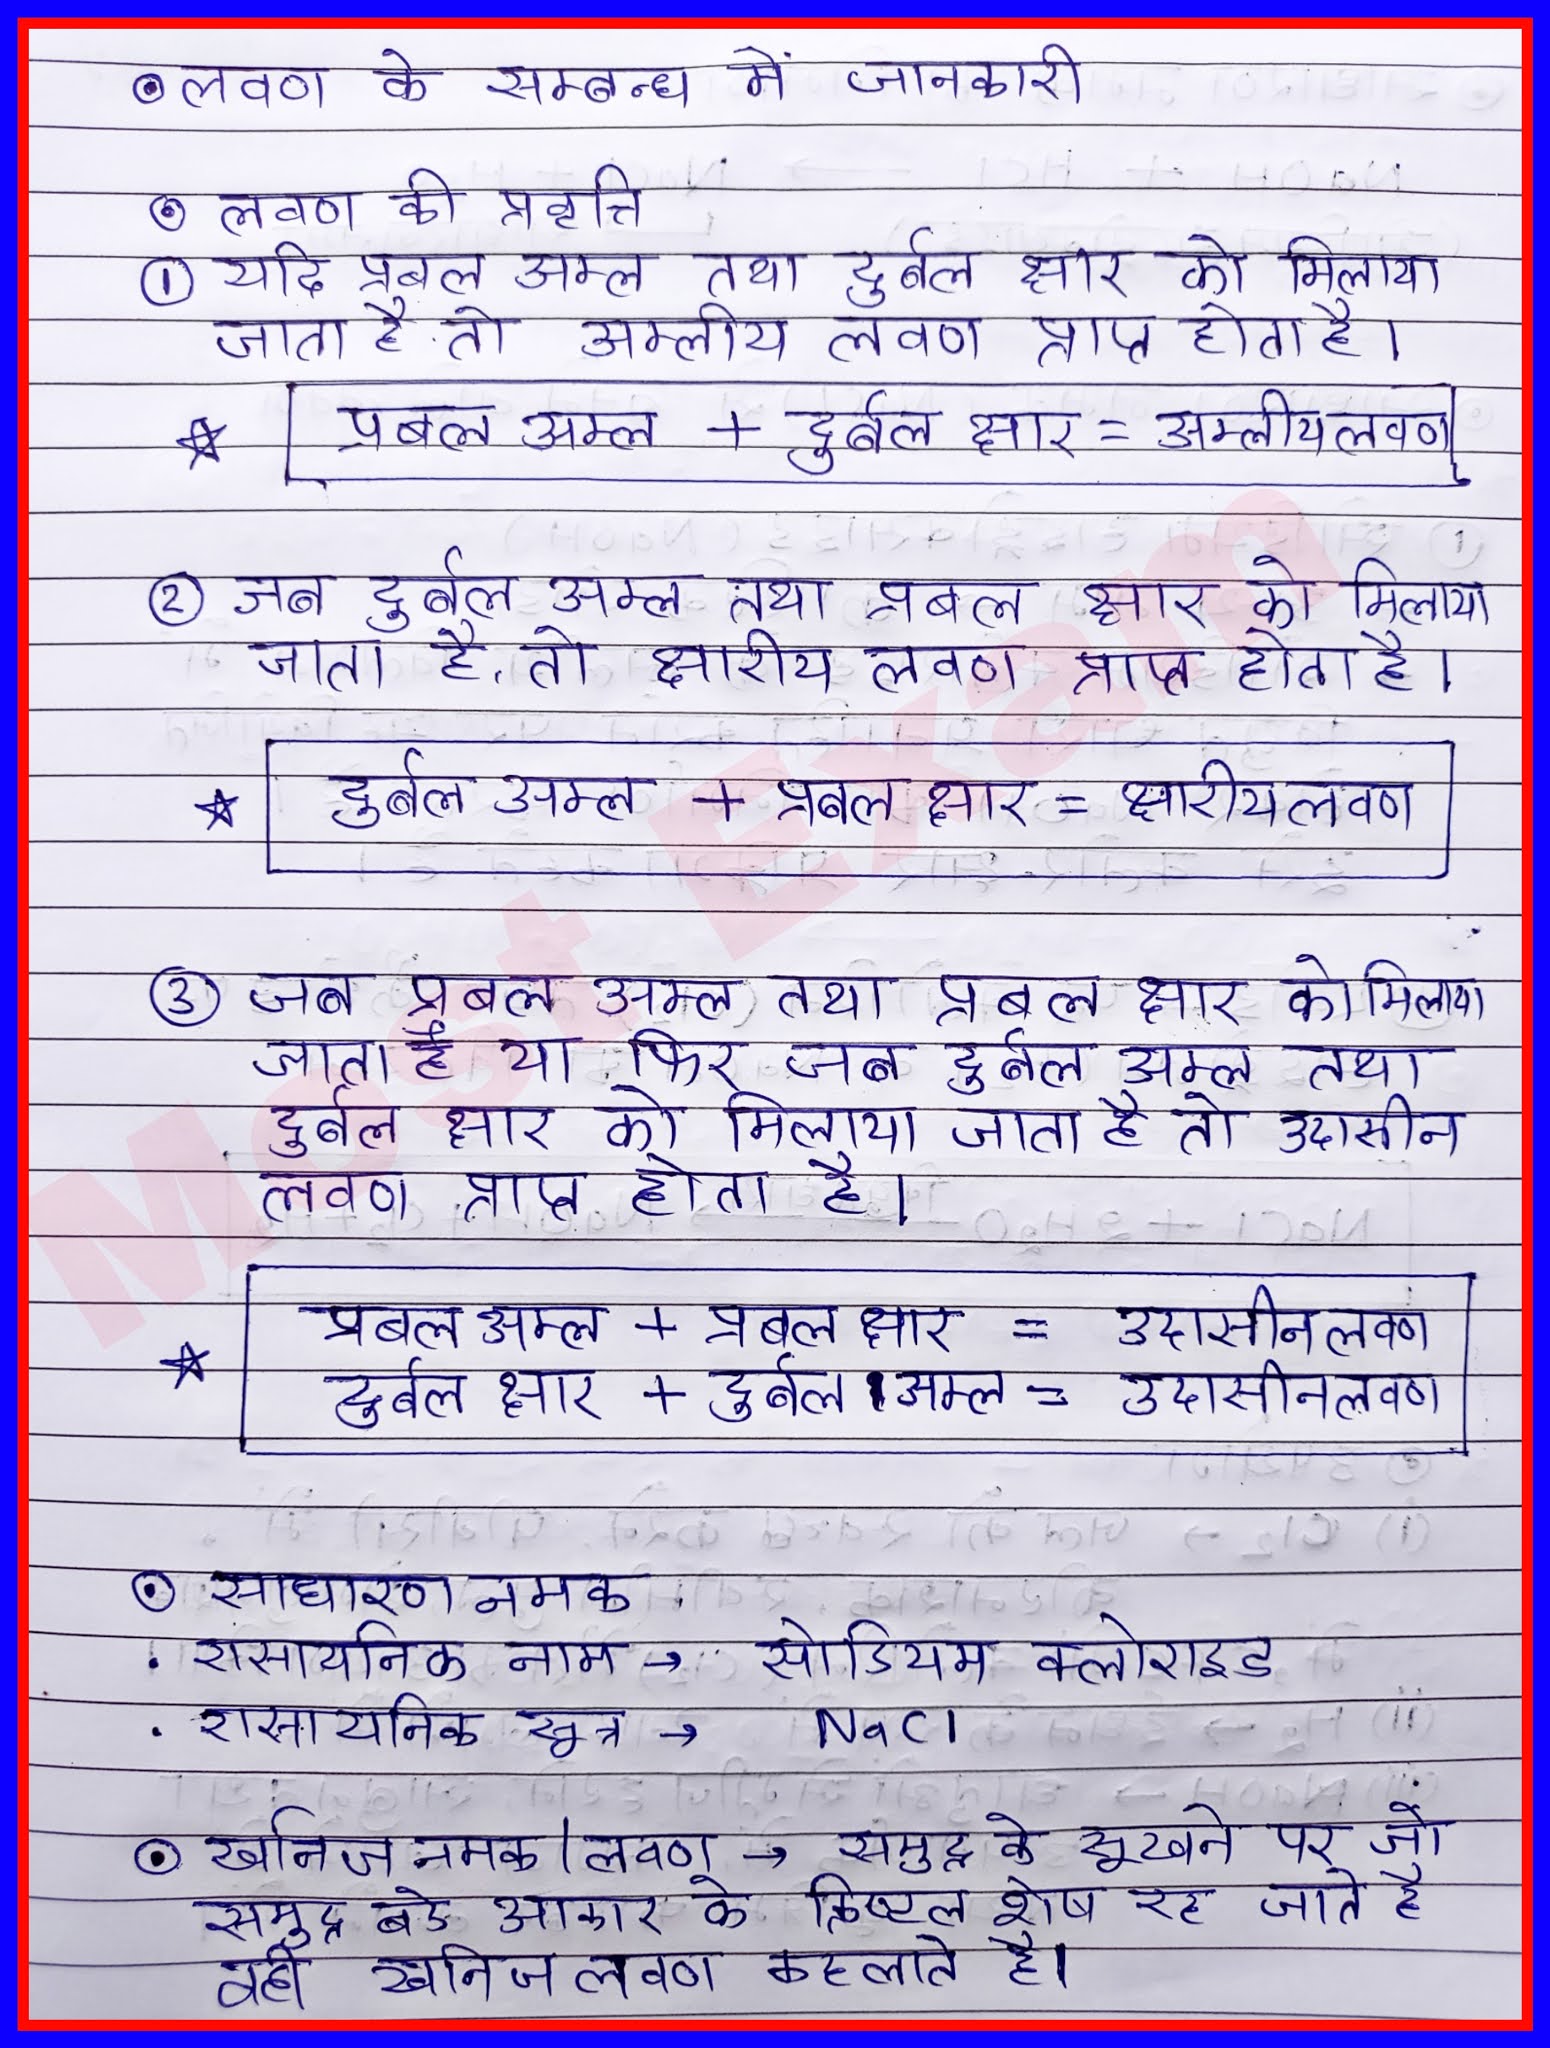 लवण के सम्बन्ध में जानकारी
लवण की प्रवृत्ति
① यदि प्रबल अम्ल तथा दुर्बल क्षार को मिलाया
जाता है तो अम्लीय लवण प्राप्त होता है।
☆ प्रबल अम्ल + दुर्बल क्षार = अम्लीय लवण
② जब दुर्बल अम्ल तथा प्रबल क्षार को मिलाया
जाता है, तो क्षारीय लवण प्राप्त होता है।
☆ दुर्बल अम्ल + प्रबल क्षार = क्षारीय लवण
③ जब प्रबल अम्ल तथा प्रबल क्षार को मिलाया
जाता है या फिर जब दुर्बल अम्ल तथा
दुर्बल क्षार को मिलाया जाता है तो उदासीन
लवण प्राप्त होता है।
प्रबल अम्ल + प्रबल क्षार = उदासीन लवण
☆ दुर्बल क्षार + दुर्बल अम्ल = उदासीन लवण
साधारण नमक
· रासायनिक नाम → सोडियम क्लोराइड
· रासायनिक सूत्र → NaCl
खनिज नमक/लवण → समुद्र के सूखने पर जो
समुद्र बडे आकार के क्रिष्टल शेष रह जाते है
वही खनिज लवण कहलाते है।
Most Exam